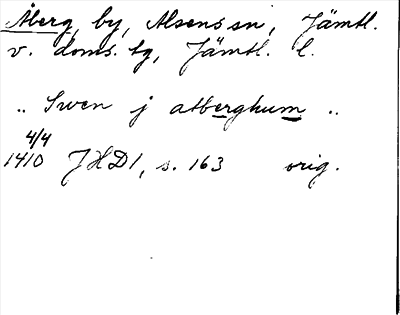 Åberg, by, Alsens sn, Jämtl.
v. doms. tg, Jämtl. l.
.. Swen j atberghum ..
4/4
1410 JHD1, s. 163 orig.